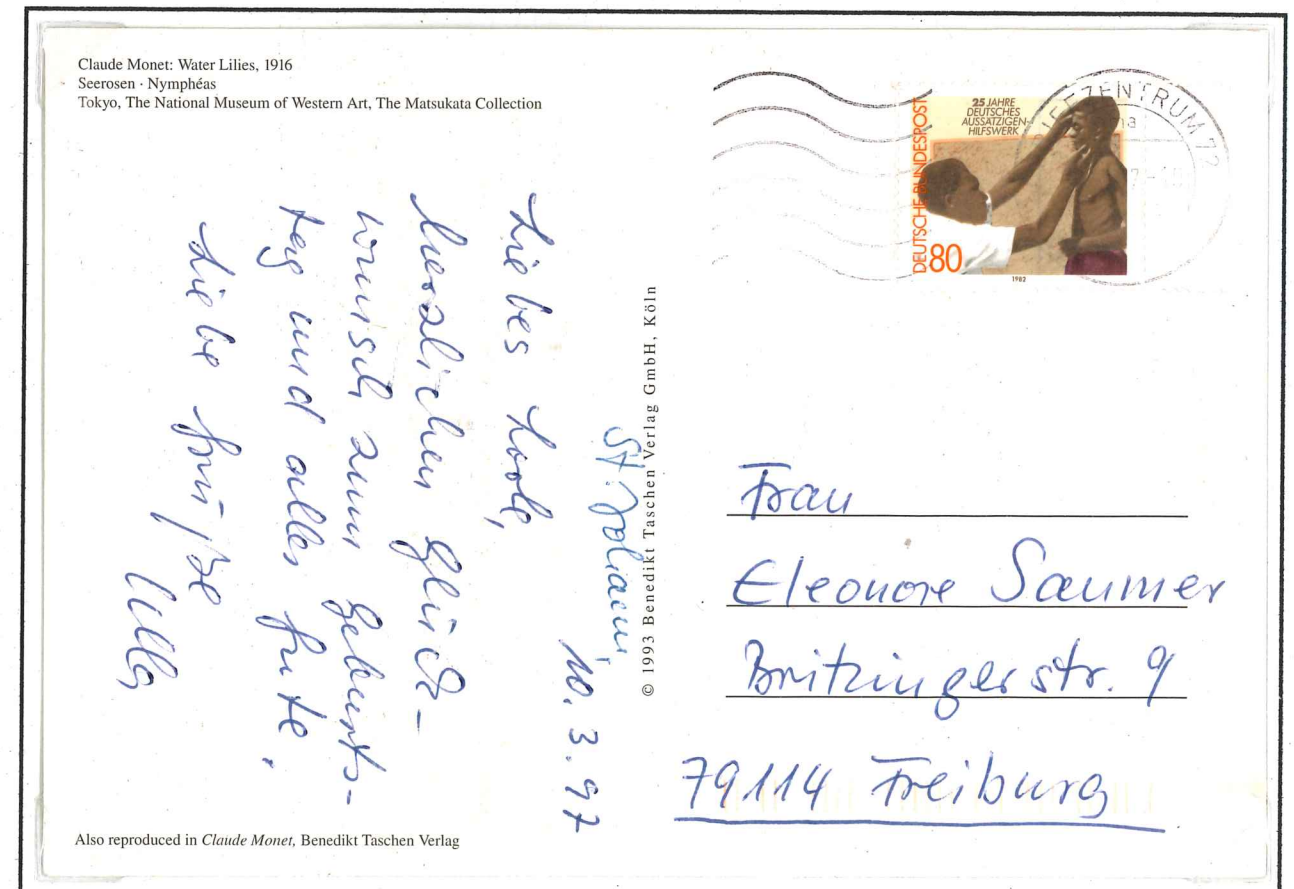 Claude Monet: Water Lilies, 1916
Seerosen · Nymphéas
Tokyo, The National Museum of Western Art, The Matsukata Collection
St. Johann,
10.3.97
Liebes Lorle,
herzlichen Glück-
wunsch zum Geburts-
tag und alles Gute.
Liebe Grüße
Ulla
Also reproduced in Claude Monet, Benedikt Taschen Verlag
© 1993 Benedikt Taschen Verlag GmbH, Köln
25 JAHRE
DEUTSCHES
AUSSÄTZIGEN-
HILFSWERK
DEUTSCHE BUNDESPOST
80
1982
IEFZENTRUM 72
Frau
Eleonore Saumer
Britzingerstr. 9
79114 Freiburg